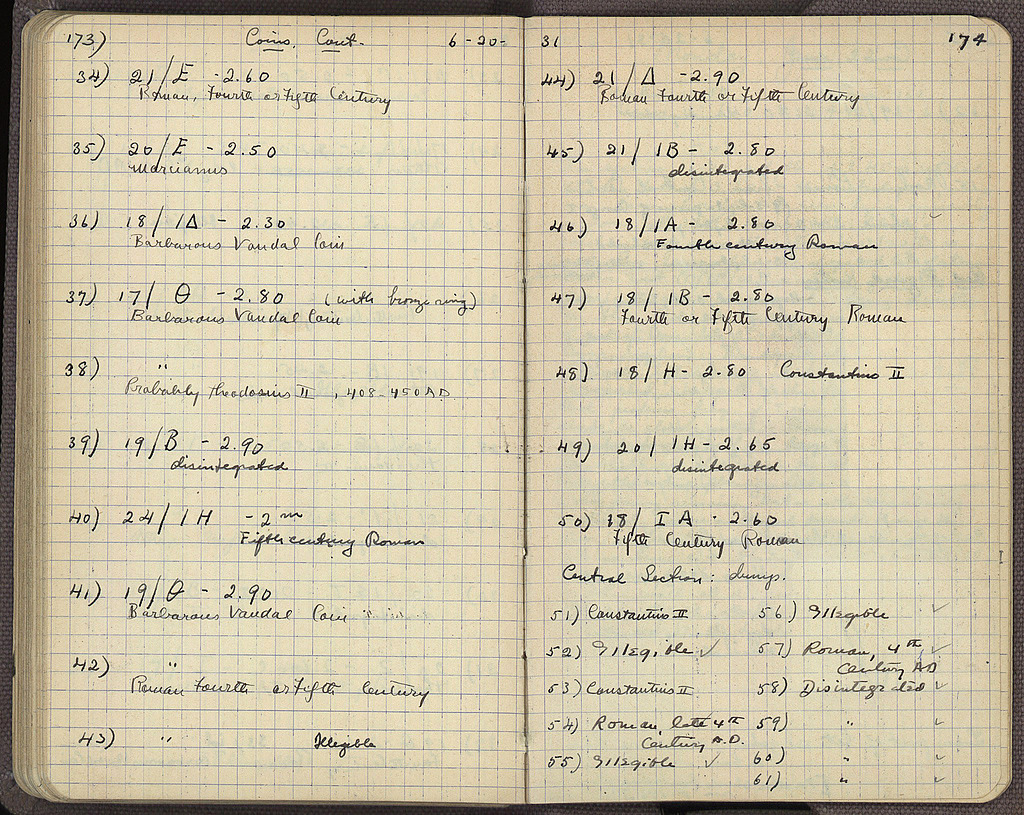 173) Coins, Cont. 6-20-
34) 21/E -2.60
Roman, Fourth or Fifth Century
35) 20/E - 2.50
Marcianus
36) 18/ IΔ - 2.30
Barbarous Vandal Coin
37) 17/ Θ - 2.80 (with bronze ring)
Barbarous Vandal Coin
38) "
Probably Theodosius II, 408-450 AD.
39) 19/B - 2.90
disintegrated
40) 24/IH -2 m
Fifth century Roman
41) 19/Θ - 2.90
Barbarous Vandal Coin
42) "
Roman Fourth or Fifth Century
43) " Illegible
31 174
44) 21/Δ -2.90
Roman Fourth or Fifth Century
45) 21/ IB - 2.80
disintegrated
46) 18/IA - 2.80
Fourth century Roman
47) 18/ IB - 2.80
Fourth or Fifth Century Roman
48) 18/ H - 2.80 Constantius II
49) 20/ IH - 2.65
disintegrated
50) 18/ IA - 2.60
Fifth Century Roman
Central Section: dumps.
51) Constantius II
52) Illegible ✓
53) Constantius II
54) Roman, late 4th
Century A.D.
55) Illegible ✓
56) Illegible ✓
57) Roman, 4th ✓
Century AD
58) Disintegrated ✓
59) " ✓
60) " ✓
61) " ✓